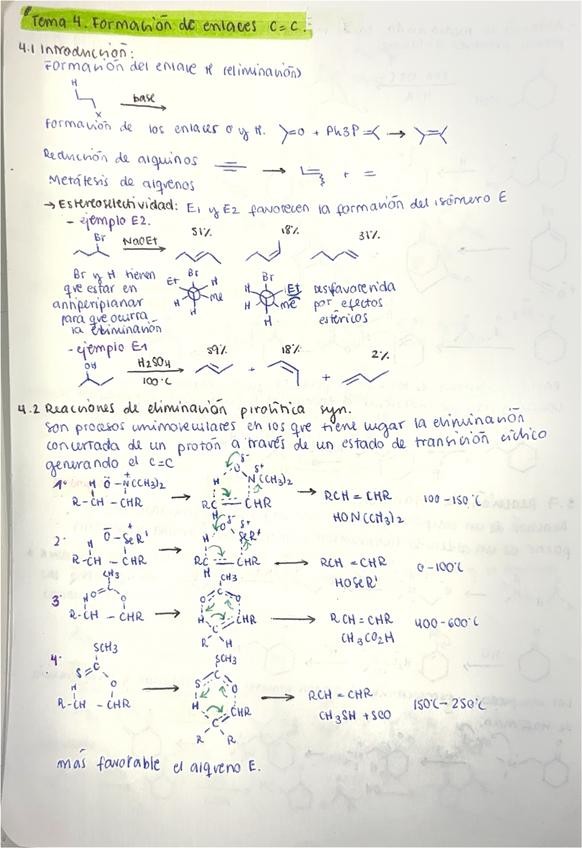 Tema 4. Formación de enlaces C=C.
4.1 Introducción:
Formación del enlace π (eliminación)
H
X
base
Formación de los enlaces σ y π. >=O + Ph3P=< →
Reducción de alquinos
Metátesis de alquenos
+ =
→ Estereoselectividad: E1 y E2 favorecen la formación del isómero E
- ejemplo E2.
Br
NaOEt
51% 18% 31%
Br y H tienen
que estar en
antiperiplanar
para que ocurra
la eliminación
Br
Et H
H Me
H
Br
H Et
H Me
H
desfavorecida
por efectos
estéricos
- ejemplo E1
OH
H2SO4
100°C
18% 2%
+ +
4.2 Reacciones de eliminación pirolítica syn.
Son procesos unimoleculares en los que tiene lugar la eliminación
concertada de un protón a través de un estado de transición cíclico
generando el C=C
1. H O-N(CH3)2
R-CH - CHR
δ- δ+
O N(CH3)2
H
RC CHR
H
RCH = CHR
HON(CH3)2
100-150°C
2. H O-SeR'
R-CH - CHR
O δ- δ+ SeR'
H
RC CHR
H
RCH = CHR
HOSeR'
0-100°C
3. CH3
H O=C O
R-CH - CHR
CH3
O C O
H CHR
C
R H
RCH = CHR
CH3CO2H
400-600°C
4. SCH3
S=C
H O
R-CH - CHR
SCH3
S C O
H CHR
C
R R
RCH = CHR
CH3SH + SCO
150°C-250°C
más favorable el alqueno E.